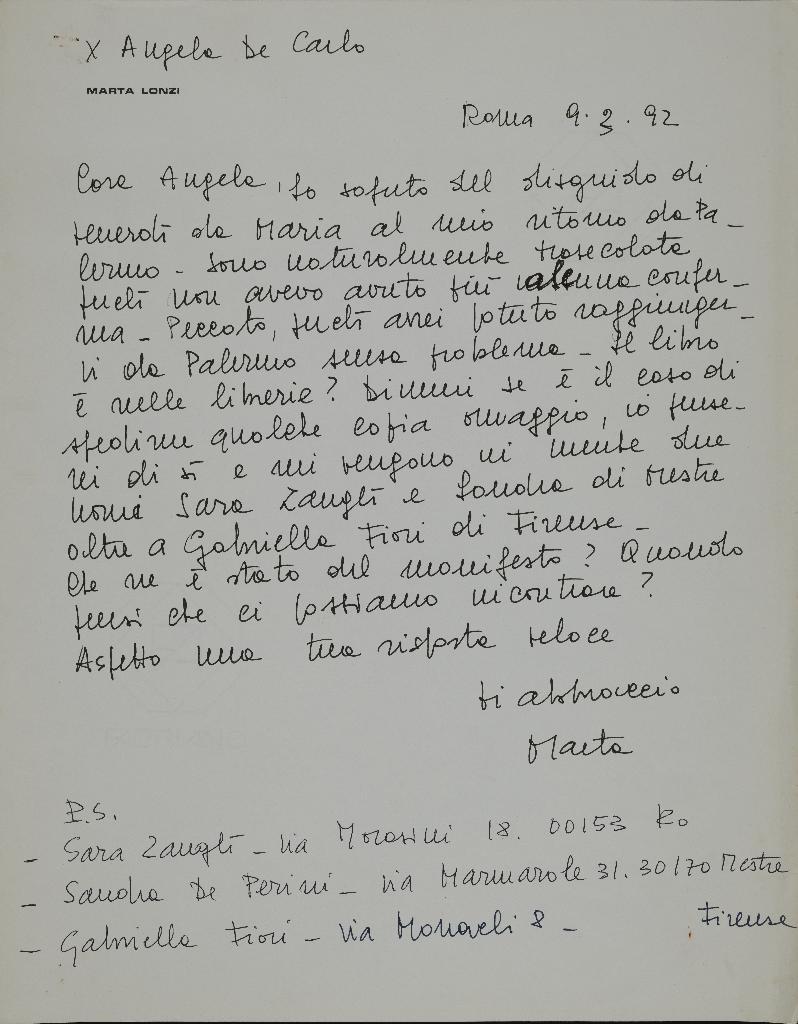 X Angela De Carlo
MARTA LONZI
Roma 9.3.92
Cara Angela, ho saputo del disguido di
venerdì da Maria al mio ritorno da Pa_
lermo - Sono naturalmente trasecolata
perché non avevo avuto più alcuna confer_
ma _ Peccato, perché avrei potuto raggiunger_
vi da Palermo senza problema _ Il libro
è nelle librerie? Dimmi se è il caso di
spedirne qualche copia omaggio, io pense_
rei di sì e mi vengono in mente due
nomi Sara Zanghì e Sandra di Mestre
oltre a Gabriella Fiori di Firenze _
Che ne è stato del manifesto? Quando
pensi che ci possiamo incontrare?
Aspetto una tua risposta veloce
ti abbraccio
Marta
P.S.
_ Sara Zanghì _ Via Morosini 18. 00153 Ro
_ Sandra De Perini _ Via Marmarole 31. 30170 Mestre
_ Gabriella Fiori _ Via 8 _ Firenze